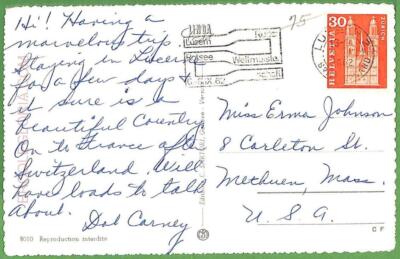 Hi! Having a
marvelous trip.
Staying in Lucerne
for a few days &
it sure is a
beautiful Country
On to France after
Switzerland. Will
have loads to talk
about.
Dot Carney
9010 Reproduction interdite
75-
Luzern
Rotsee
Weltmeister
schaft
62
30
HELVETIA
ZÜRICH
Miss Erma Johnson
8 Carleton St.
Methuen, Mass.
U.S.A.
C F